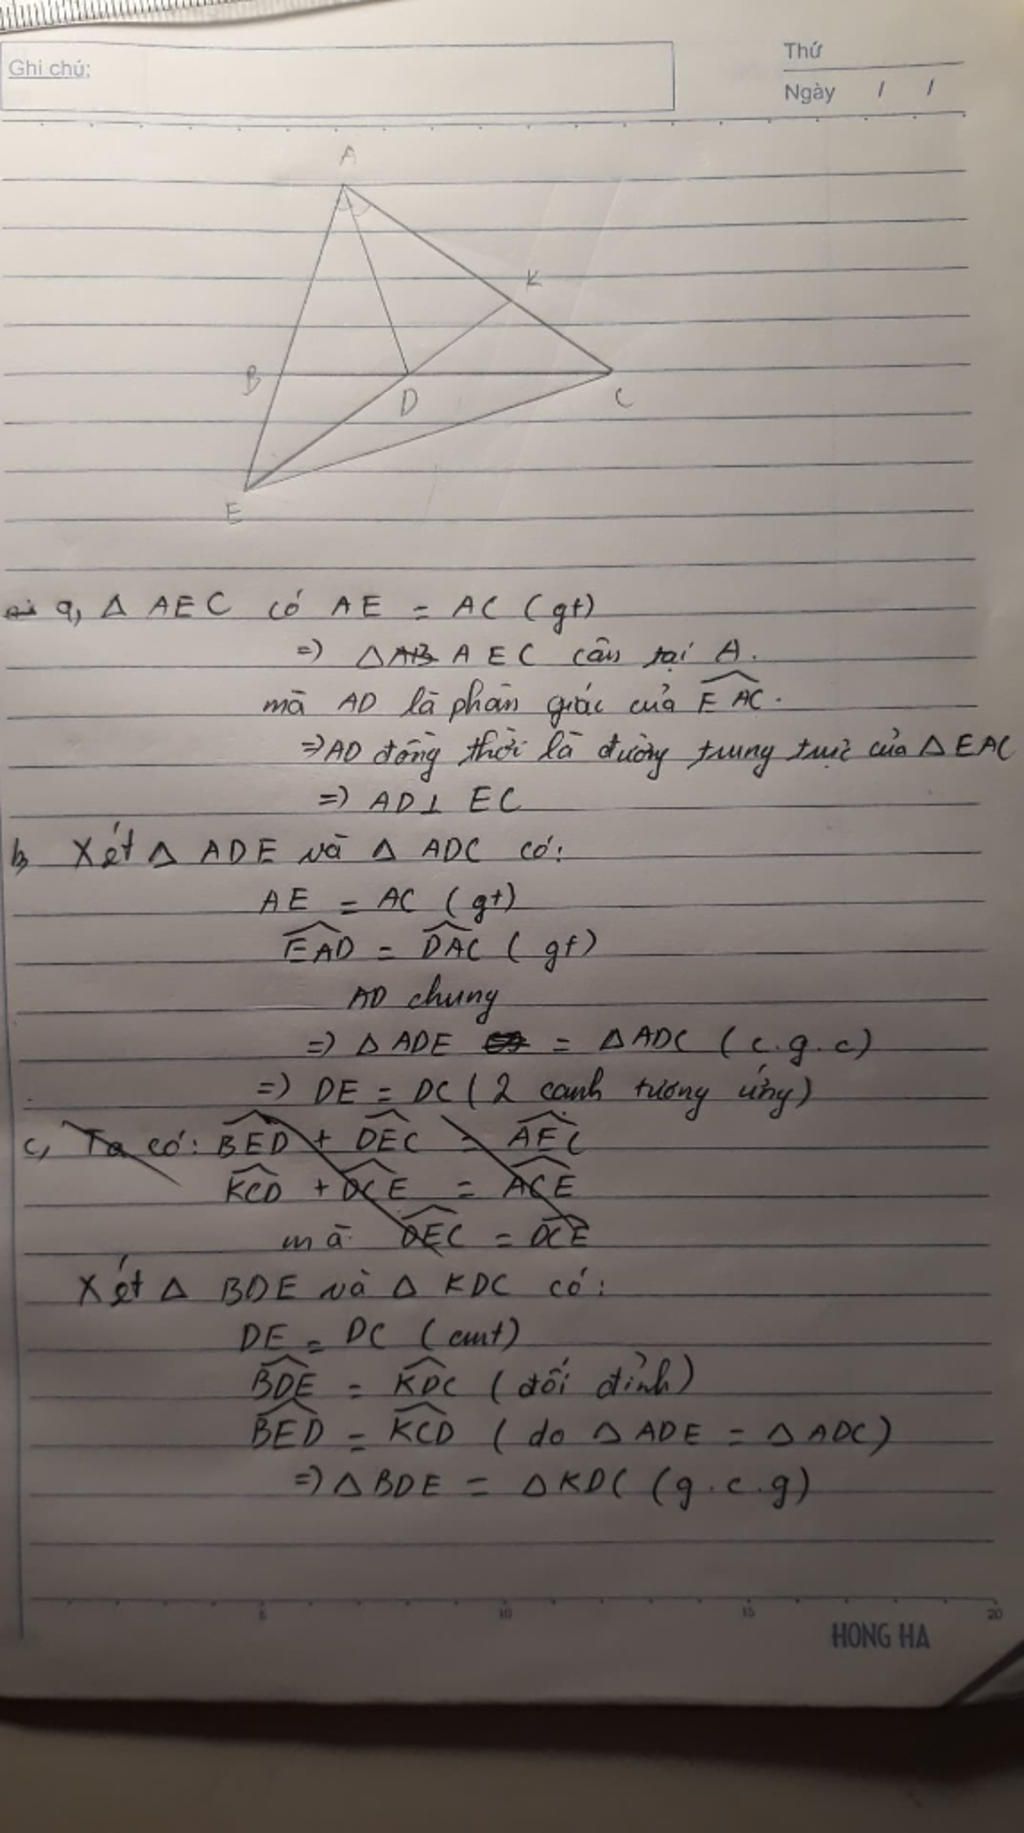 Ghi chú:
Thứ
Ngày / /
A
K
B
D
C
E
a, △ AEC có AE = AC (gt)
=> △AB AEC cân tại A.
mà AD là phân giác của EAC.
=> AD đồng thời là đường trung trực của △ EAC
=> AD ⊥ EC
b, Xét △ ADE và △ ADC có:
AE = AC (gt)
EAD = DAC (gt)
AD chung
=> △ ADE = △ADC (c.g.c)
=> DE = DC (2 cạnh tương ứng)
c, Ta có: BED + DEC = AEC
KCD + DCE = ACE
mà DEC = DCE
Xét △ BDE và △ KDC có:
DE = DC (cmt)
BDE = KDC (đối đỉnh)
BED = KCD (do △ ADE = △ ADC)
=> △ BDE = △ KDC (g.c.g)
5 10 15 20
HONG HA